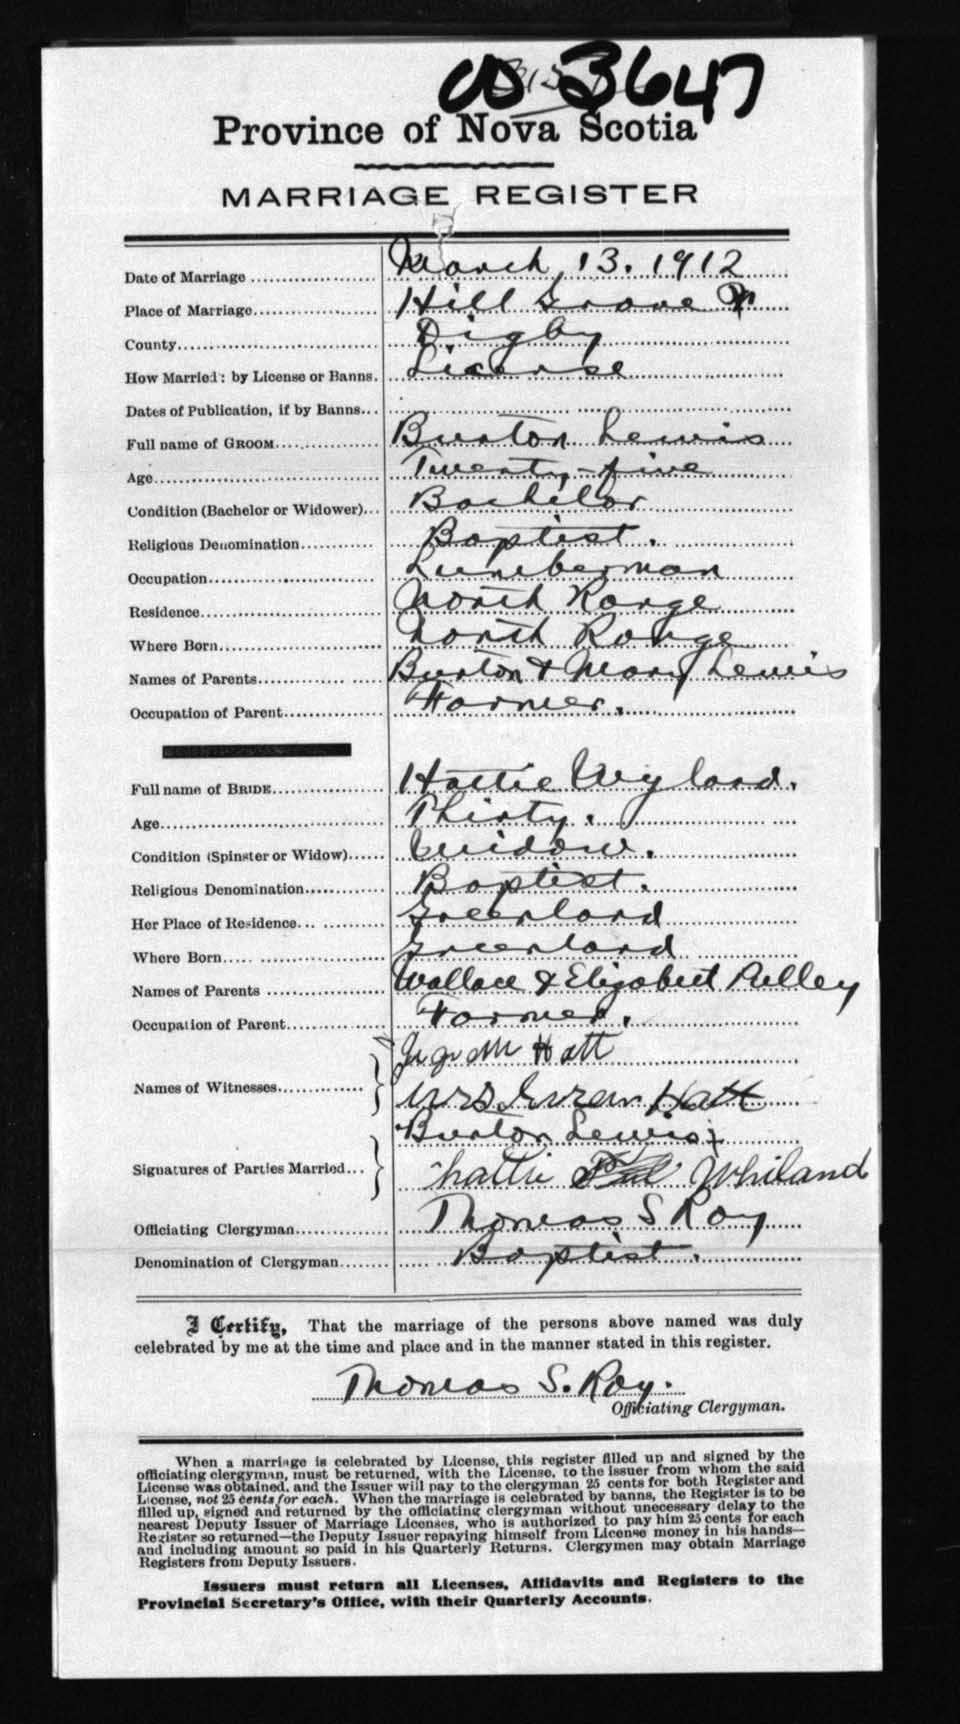 3647
Province of Nova Scotia
MARRIAGE REGISTER
Date of Marriage March, 13. 1912
Place of Marriage Hill Grove
County Digby
How Married: by License or Banns. License
Dates of Publication, if by Banns
Full name of GROOM Burton Lewis
Age Twenty-five
Condition (Bachelor or Widower) Bachelor
Religious Denomination Baptist.
Occupation Lumberman
Residence North Range
Where Born North Range
Names of Parents Burton & Mary Lewis
Occupation of Parent Farmer.
Full name of BRIDE Hattie Wyland.
Age Thirty.
Condition (Spinster or Widow) Widow.
Religious Denomination Baptist.
Her Place of Residence Greenland
Where Born Greenland
Names of Parents Wallace & Elizabeth
Occupation of Parent Farmer.
Hatt
Names of Witnesses Mrs Hatt
Burton Lewis
Signatures of Parties Married hattie Whiland
Officiating Clergyman Thomas S Roy
Denomination of Clergyman Baptist.
I Certify, That the marriage of the persons above named was duly
celebrated by me at the time and place and in the manner stated in this register.
Thomas S. Roy.
Officiating Clergyman.
When a marriage is celebrated by License, this register filled up and signed by the
officiating clergyman, must be returned, with the License, to the issuer from whom the said
License was obtained, and the Issuer will pay to the clergyman 25 cents for both Register and
License, not 25 cents for each. When the marriage is celebrated by banns, the Register is to be
filled up, signed and returned by the officiating clergyman without unnecessary delay to the
nearest Deputy Issuer of Marriage Licenses, who is authorized to pay him 25 cents for each
Register so returned—the Deputy Issuer repaying himself from License money in his hands—
and including amount so paid in his Quarterly Returns. Clergymen may obtain Marriage
Registers from Deputy Issuers.
Issuers must return all Licenses, Affidavits and Registers to the
Provincial Secretary's Office, with their Quarterly Accounts.